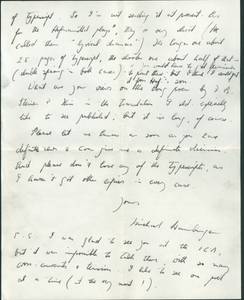 of typescript. So I'm not sending it at present. As
for the Hofmannsthal plays, they're very short (he
called them "lyrical dramas"). The longer one about
25 pages of typescript, the shorter one about half of that —
(double spacing in both cases).
What are your views on the long poem by
this is the translation I'd specially
like to see published. But it is long, of course.
Please let me know as soon as you have
definite news & can give me a definite decision.
And please don't lose any of the typescripts, as
I haven't got other copies in every case.
Yours
Michael Hamburger
P.S. I was glad to see you at the I.C.A.,
but it was impossible to talk there, with so many
& tension. I like to see one poet
at a time (at the very most!).